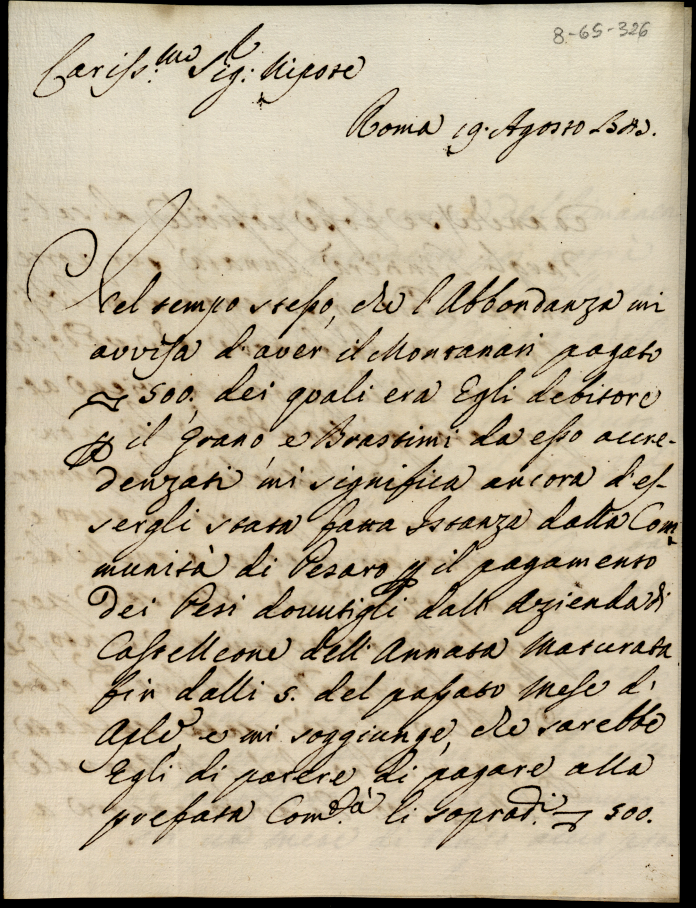 8-65-326
Cariss.mo Sig.r Nipote
Roma 19. Agosto
Nel tempo stesso, che l'Abbondanza mi
avvisa d'aver il Montanari pagato
500. dei quali era Egli debitore
p il grano, e Brastimi da esso accre-
denzati mi significa ancora d'es-
sergli stata fatta Istanza dalla Com-
munità di Pesaro p il pagamento
dei Pesi dovutigli dall'Azienda di
Castelleone dell'Annata maturata
fin dalli 5. del passato Mese di
Aple e mi soggiunge, che sarebbe
Egli di parere di pagare alla
prefata Com.tà li sopradi. 500.